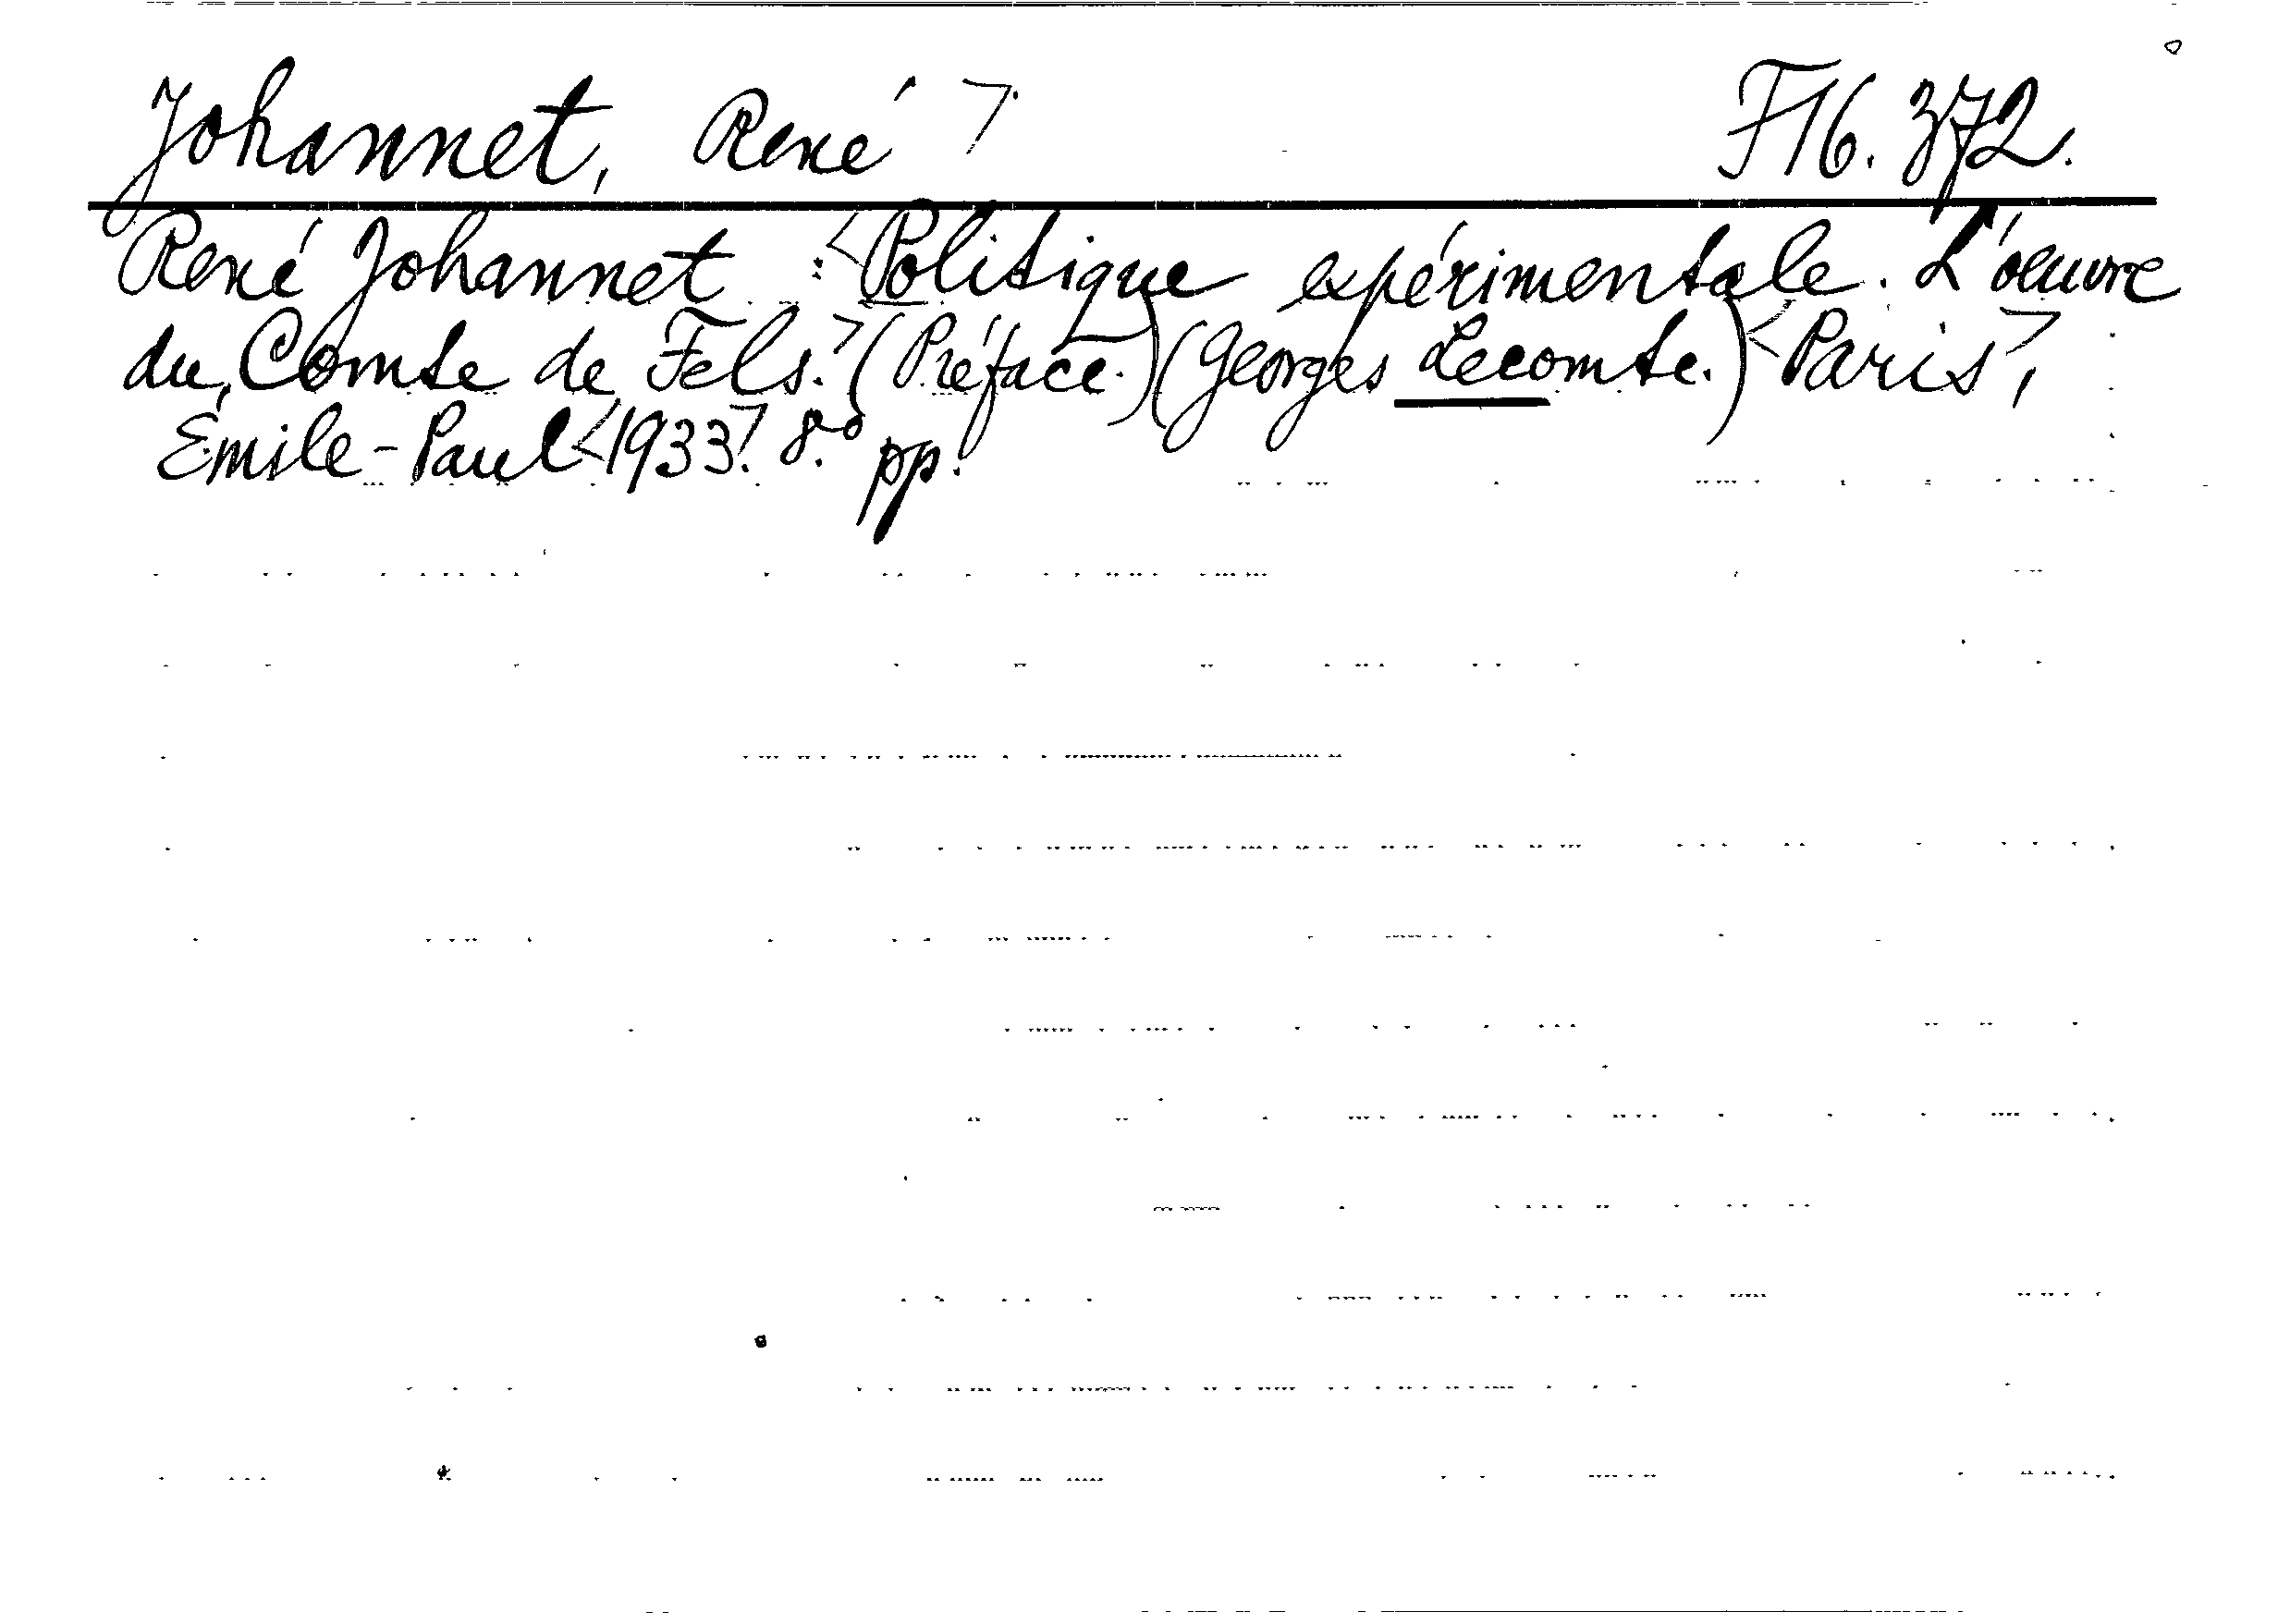 Johannet, René 7. F16. 372.
René Johannet : <Politique expérimentale. L'oeuvre
du Comte de Fels.7 (Préface.) (Georges Lecomte.) <Paris7,
Émile-Paul <19337. 8.° pp.